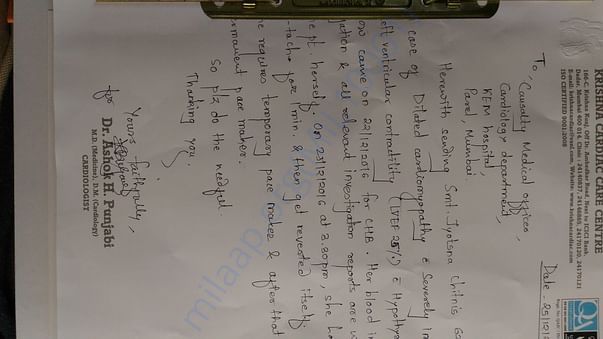 KRISHNA CARDIAC CARE CENTRE
186-C, Krishna Kunj, Off Dr. Ambedkar Road, Next to ICICI Bank,
Dadar, Mumbai 400 014.
ISO CERTIFIED 9001:2008
Date - 25/12/2
To, Causalty Medical officer,
Cardiology department,
KEM hospital,
Parel, Mumbai
Herewith sending Smt. Jyotsna Chitnis
case of Dilated cardiomyopathy c̄ Severely im
eft ventricular contractility (LVEF 25%) c̄ Hypothy
ow came on 22/12/2016 for CHB. Her blood in
gation & all relevant investigation reports are w
ept. herself. On 25/12/2016 at 3.30pm, she ha
-tachy for 1min. & then get reverted itself.
he requires temporary pace maker & after that
ermanent pace maker.
So plz do the needful.
Thanking you.
Yours faithfully,
for
Dr. Ashok H. Punjabi
M.D. (Medicine), D.M. (Cardiology)
CARDIOLOGIST
milaap.org